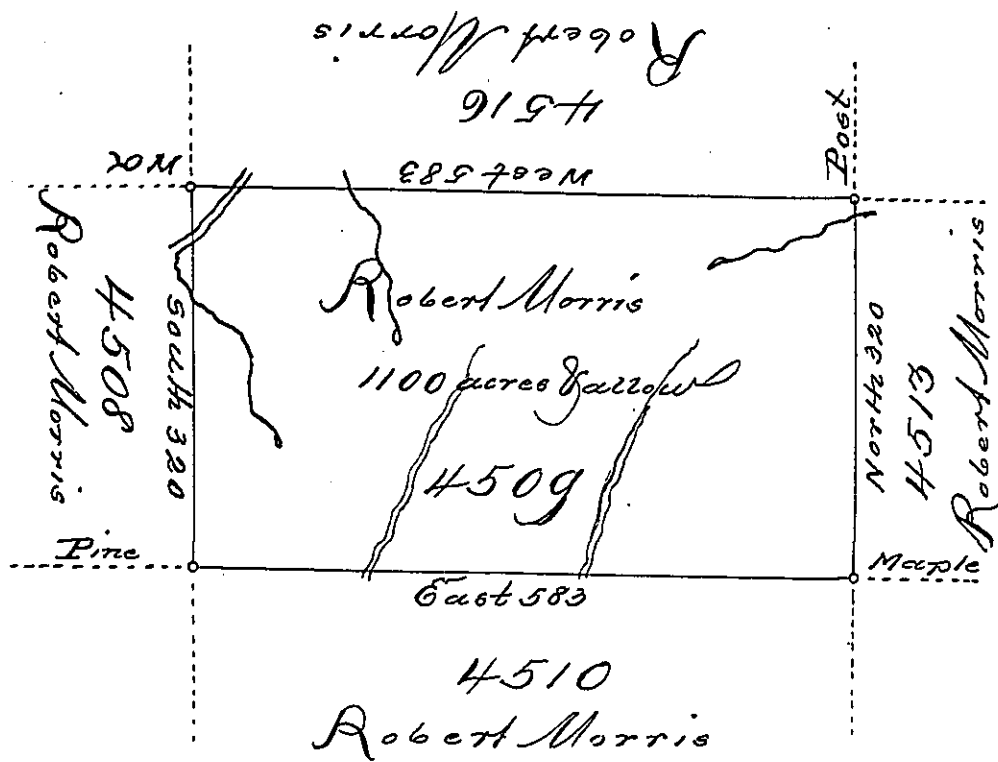 Robert Morris
4516
West 583
Post
Robert Morris
4508
South 320
Robert Morris
1100 acres & allow
4509
North 320
4513
Robert Morris
Pine
Maple
East 583
4510
Robert Morris